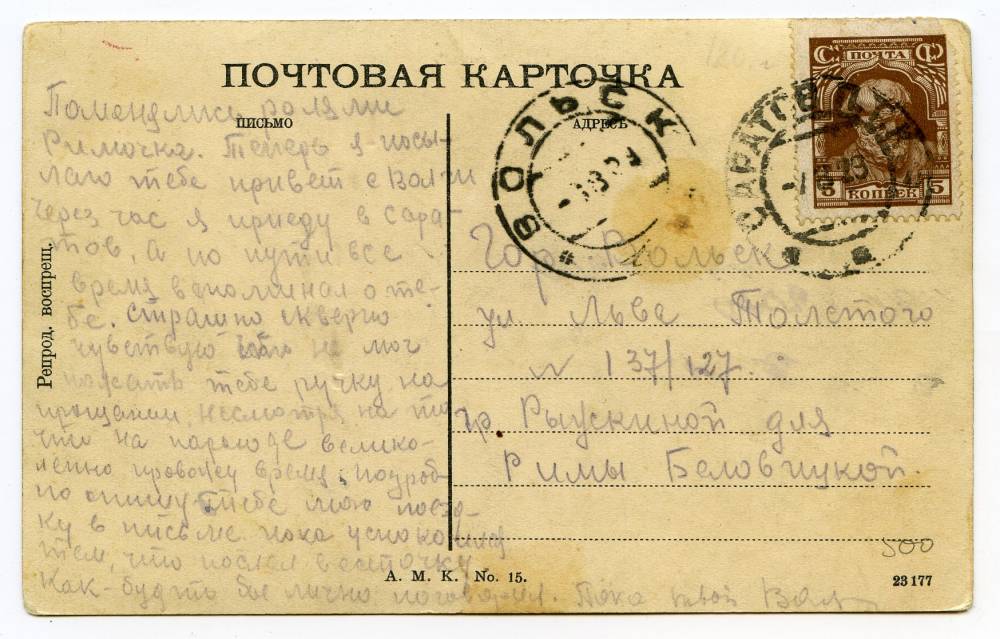 ПОЧТОВАЯ КАРТОЧКА
ПИСЬМО
АДРЕСЪ
ПОЧТА
5 КОПЕЕК 5
ВОЛЬСК
САРАТОВ
Поменялись ролями
Римочка. Теперь я посы-
лаю тебе привет с Волги
Через час я приеду в Сара-
тов, а по пути все
время вспоминал о те-
бе. Страшно скверно
чувствую что не мог
пожать тебе ручку на
прощании, несмотря на то
что на пароходе велико-
лепно провожу время. Подроб-
но опишу тебе мою поезд-
ку в письме пока успокоишся
тем, что послал весточку,
Как-будто бы лично поговорил. Пока твой
Гор. Вольск
ул. Льва Толстого
N 137/127.
гр. Рыускиной для
Римы Беловицкой.
500
Репрод. воспрещ.
А. М. К. No. 15.
23 177